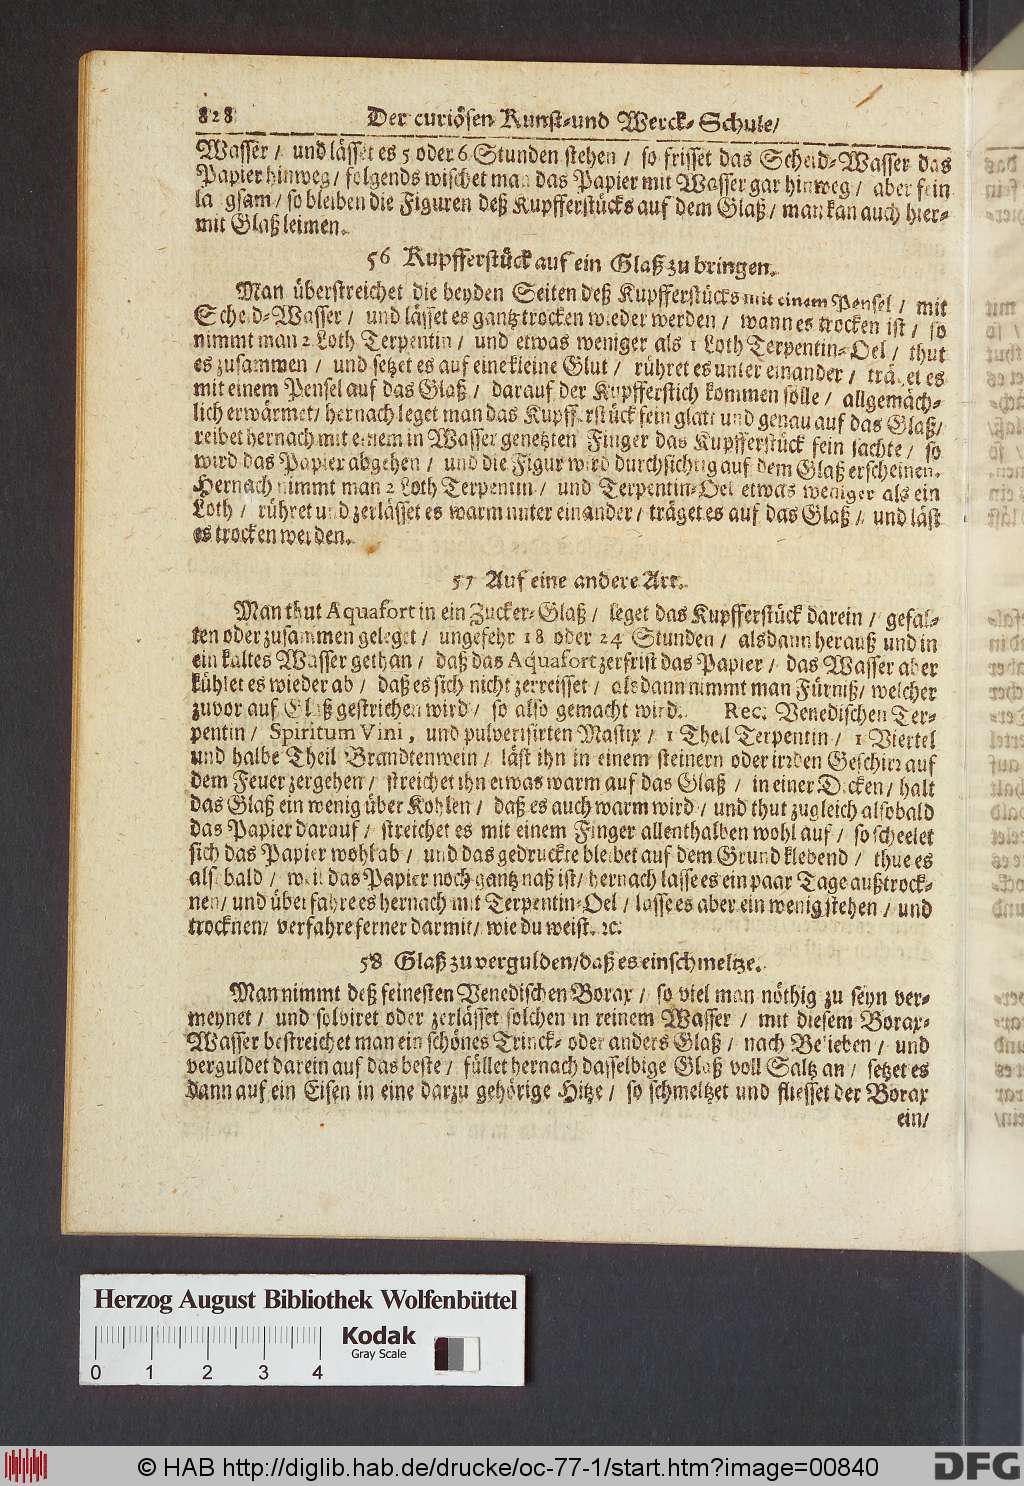 828 Der curiösen Kunst-und Werck-Schule/
Wasser / und lässet es 5 oder 6 Stunden stehen / so frisset das Scheid-Wasser das
Papier hinweg / folgends wischet man das Papier mit Wasser gar hinweg / aber fein
langsam / so bleiben die Figuren deß Kupfferstücks auf dem Glaß / man kan auch hier-
mit Glaß leimen.
56 Kupfferstück auf ein Glaß zu bringen.
Man überstreichet die beyden Seiten deß Kupfferstücks mit einem Pensel / mit
Scheid-Wasser / und lässet es gantz trocken wieder werden / wann es trocken ist / so
nimmt man 2 Loth Terpentin / und etwas weniger als 1 Loth Terpentin-Oel / thut
es zusammen / und setzet es auf eine kleine Glut / rühret es unter einander / träget es
mit einem Pensel auf das Glaß / darauf der Kupfferstich kommen solle / allgemäch-
lich erwärmet / hernach leget man das Kupfferstück fein glatt und genau auf das Glaß/
reibet hernach mit einem in Wasser genetzten Finger das Kupfferstück fein sachte / so
wird das Papier abgehen / und die Figur wird durchsichtig auf dem Glaß erscheinen.
Hernach nimmt man 2 Loth Terpentin / und Terpentin-Oel etwas weniger als ein
Loth / rühret und zerlässet es warm unter einander / träget es auf das Glaß / und läst
es trocken werden.
57 Auf eine andere Art.
Man thut Aquafort in ein Zucker-Glaß / leget das Kupfferstück darein / gefal-
ten oder zusammen geleget / ungefehr 18 oder 24 Stunden / alsdann herauß und in
ein kaltes Wasser gethan / daß das Aquafort zerfrist das Papier / das Wasser aber
kühlet es wieder ab / daß es sich nicht zerreisset / alsdann nimmt man Fürniß / welcher
zuvor auf Glaß gestrichen wird / so also gemacht wird. Rec. Venedischen Ter-
pentin / Spiritum Vini, und pulverisirten Mastix / 1 Theil Terpentin / 1 Viertel
und halbe Theil Brandtenwein / läst ihn in einem steinern oder irrden Geschirr auf
dem Feuer zergehen / streichet ihn etwas warm auf das Glaß / in einer Dicken / halt
das Glaß ein wenig über Kohlen / daß es auch warm wird / und thut zugleich alsobald
das Papier darauf / streichet es mit einem Finger allenthalben wohl auf / so scheelet
sich das Papier wohl ab / und das gedruckte bleibet auf dem Grund klebend / thue es
alsobald / weil das Papier noch gantz naß ist / hernach lasse es ein paar Tage außtrock-
nen / und überfahre es hernach mit Terpentin-Oel / lasse es aber ein wenig stehen / und
trocknen / verfahre ferner darmit / wie du weist. ꝛc.
58 Glaß zu vergulden / daß es einschmeltze.
Man nimmt deß feinesten Venedischen Borax / so viel man nöthig zu seyn ver-
meynet / und solviret oder zerlässet solchen in reinem Wasser / mit diesem Borax-
Wasser bestreichet man ein schönes Trinck- oder anders Glaß / nach Belieben / und
verguldet darein auf das beste / füllet hernach dasselbige Glaß voll Saltz an / setzet es
dann auf ein Eisen in eine darzu gehörige Hitze / so schmeltzet und fliesset der Borax
ein/
Herzog August Bibliothek Wolfenbüttel
Kodak
Gray Scale
0 1 2 3 4
© HAB http://diglib.hab.de/drucke/oc-77-1/start.htm?image=00840
DFG